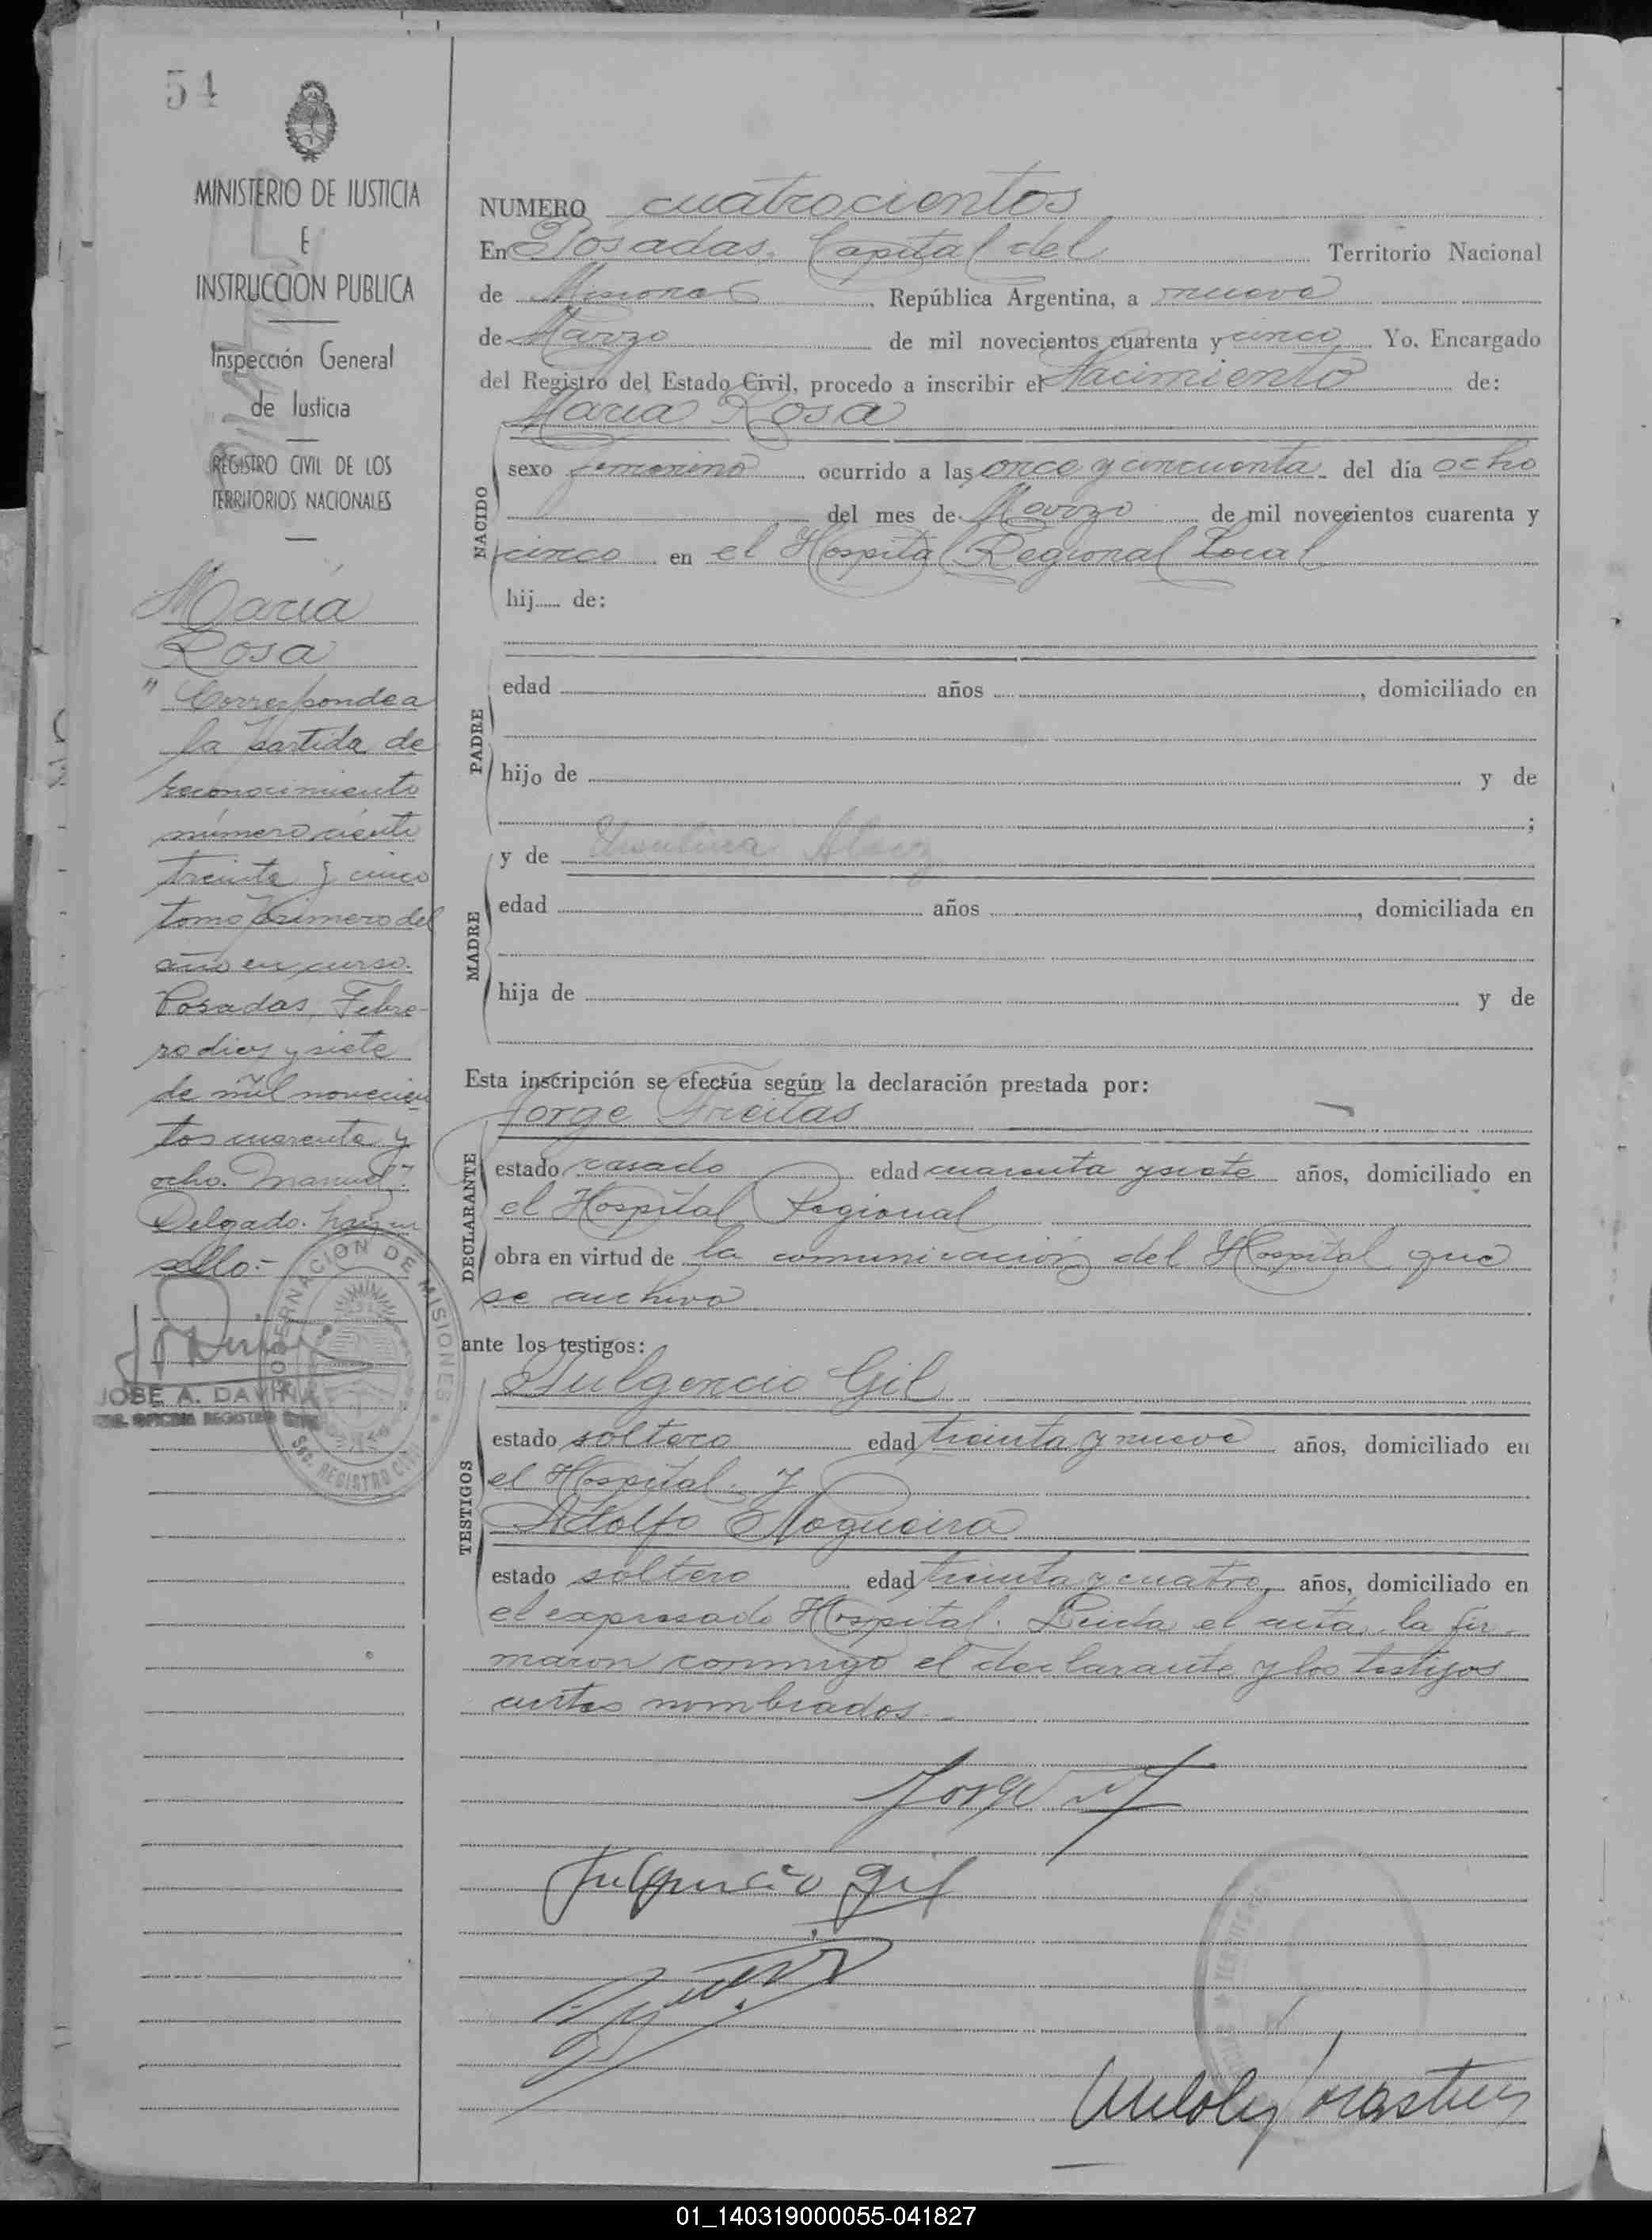 54
MINISTERIO DE JUSTICIA
E
INSTRUCCIÓN PUBLICA
Inspección General
de Justicia
REGISTRO CIVIL DE LOS
TERRITORIOS NACIONALES
María
Rosa
" Corresponde a
la partida de
reconocimiento
número ciento
treinta y cinco
tomo primero del
año en curso.
Posadas, Febre-
ro diez y siete
de mil novecien
tos cuarenta y
ocho. Manuel
Delgado. hay un
sello.-
GOBERNACIÓN DE MISIONES
SEC. REGISTRO CIVIL
JOSE A. DAVIÑA
OFICINA REGISTRO CIVIL
NUMERO cuatrocientos
En Posadas, Capital del Territorio Nacional
de Misiones, República Argentina, a nueve
de Marzo de mil novecientos cuarenta y cinco Yo, Encargado
del Registro del Estado Civil, procedo a inscribir el Nacimiento de:
María Rosa
NACIDO
sexo femenino ocurrido a las once y cincuenta del día ocho
del mes de Marzo de mil novecientos cuarenta y
cinco en el Hospital Regional Local
hij...... de:
PADRE
edad años , domiciliado en
hijo de y de
;
MADRE
y de
edad años , domiciliada en
hija de y de
Esta inscripción se efectúa según la declaración prestada por:
Jorge Freitas
DECLARANTE
estado casado edad cuarenta y siete años, domiciliado en
el Hospital Regional
obra en virtud de la comunicación del Hospital que
se archiva
ante los testigos:
TESTIGOS
Fulgencio Gil
estado soltero edad treinta y nueve años, domiciliado en
el Hospital y
Adolfo Nogueira
estado soltero edad treinta y cuatro, años, domiciliado en
el expresado Hospital. Leida el acta, la fir-
maron conmigo el declarante y los testigos
antes nombrados.-
Jorge
Fulgencio Gil
01_140319000055-041827